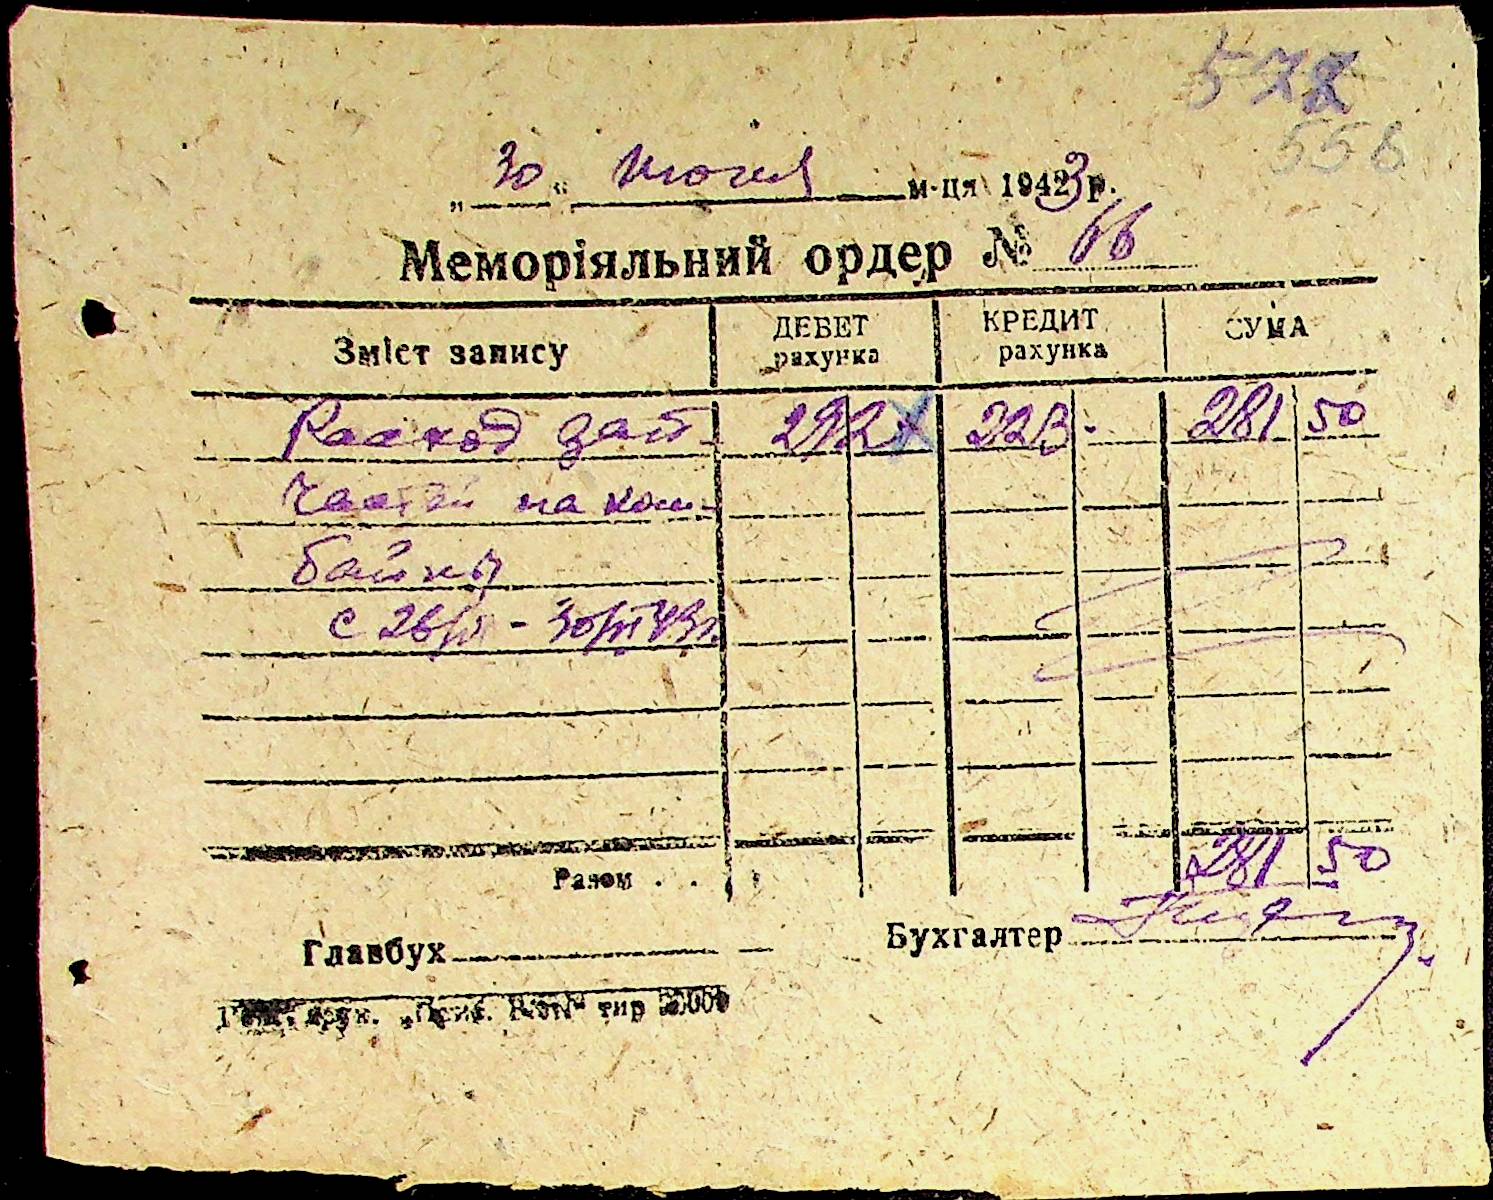 578
558
„30“ июня м-ця 1943 р.
Меморіяльний ордер № 66
Зміст запису ДЕБЕТ рахунка КРЕДИТ рахунка СУМА
Расход зап- 292 223 - 281 50
частей на ком-
байны
с 26/VI - 30/VI 43 г.
Разом . . 281 50
Главбух Бухгалтер
друк. тир